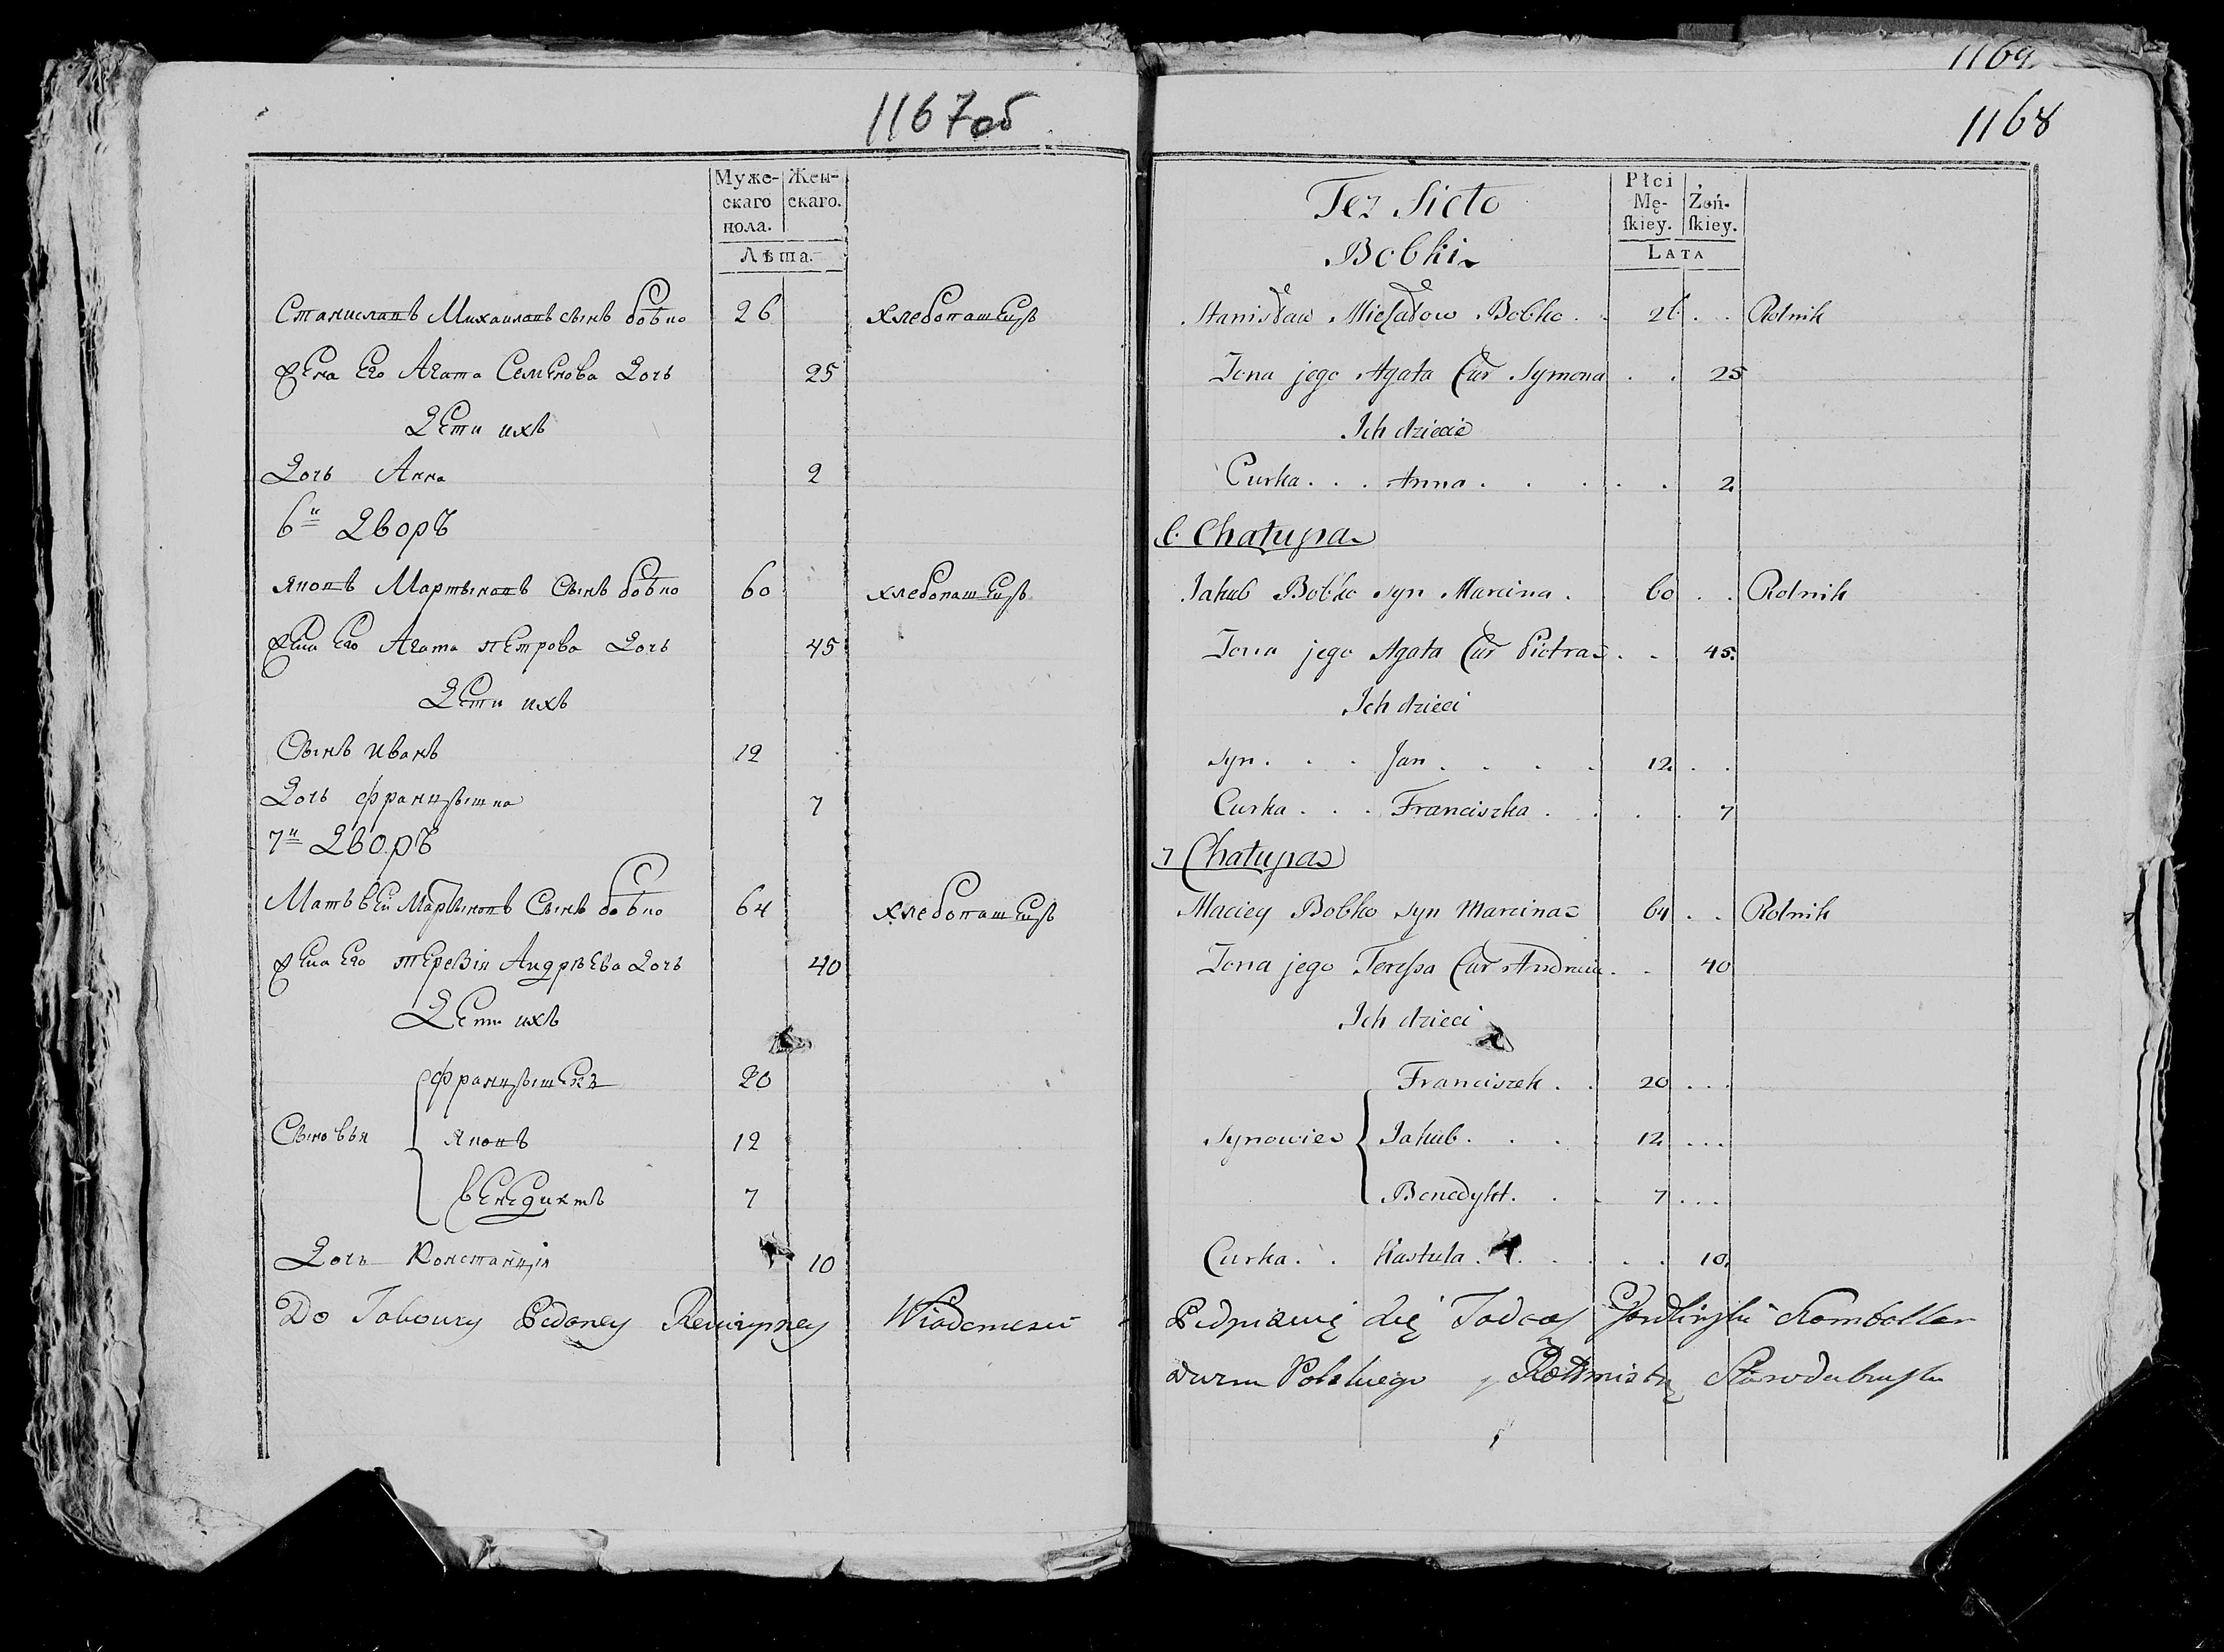 1167об
Муже-
скаго
пола.
Жен-
скаго.
Лѣта.
Станиславъ Михаилавъ сынъ бобко 26 хлебопашецъ
жена Его Агата Семенова Дочь 25
Дети ихъ
Дочь Анна 2
6й Дворъ
Якопъ Мартыновъ Сынъ бобко 60 хлебопашецъ
жена Его Агата петрова Дочь 45
Дети ихъ
Сынъ иванъ 12
Дочь францышка 7
7й Дворъ
Матьвей Мартыновъ Сынъ бобко 64 хлебопашецъ
жена Его терезія Андрѣева Дочь 40
Дети ихъ
Сыновья
францышекъ 20
Якопъ 12
бенедиктъ 7
Дочь Констанція 10
Do Podaney Wiadomości
1169
1168
Też Sioło
Bobki
Płci
Mę-
ſkiey.
Żeń-
ſkiey.
LATA
Stanisław Michałow Bobko 26 Rolnik
Zona jego Agata Cur Symona 25
Ich dziecie
Curka Anna 2
6 Chałupa
Jakub Bobko syn Marcina 60 Rolnik
Zona jego Agata Cur Piotra 45
Ich dzieci
syn Jan 12
Curka Franciszka 7
7 Chałupa
Maciey Bobko syn Marcina 64 Rolnik
Zona jego Teressa Cur Andreia 40
Ich dzieci
Synowie
Franciszek 20
Jakub 12
Benedykt 7
Curka Kastula 10
Podpisuię się
Polskiego